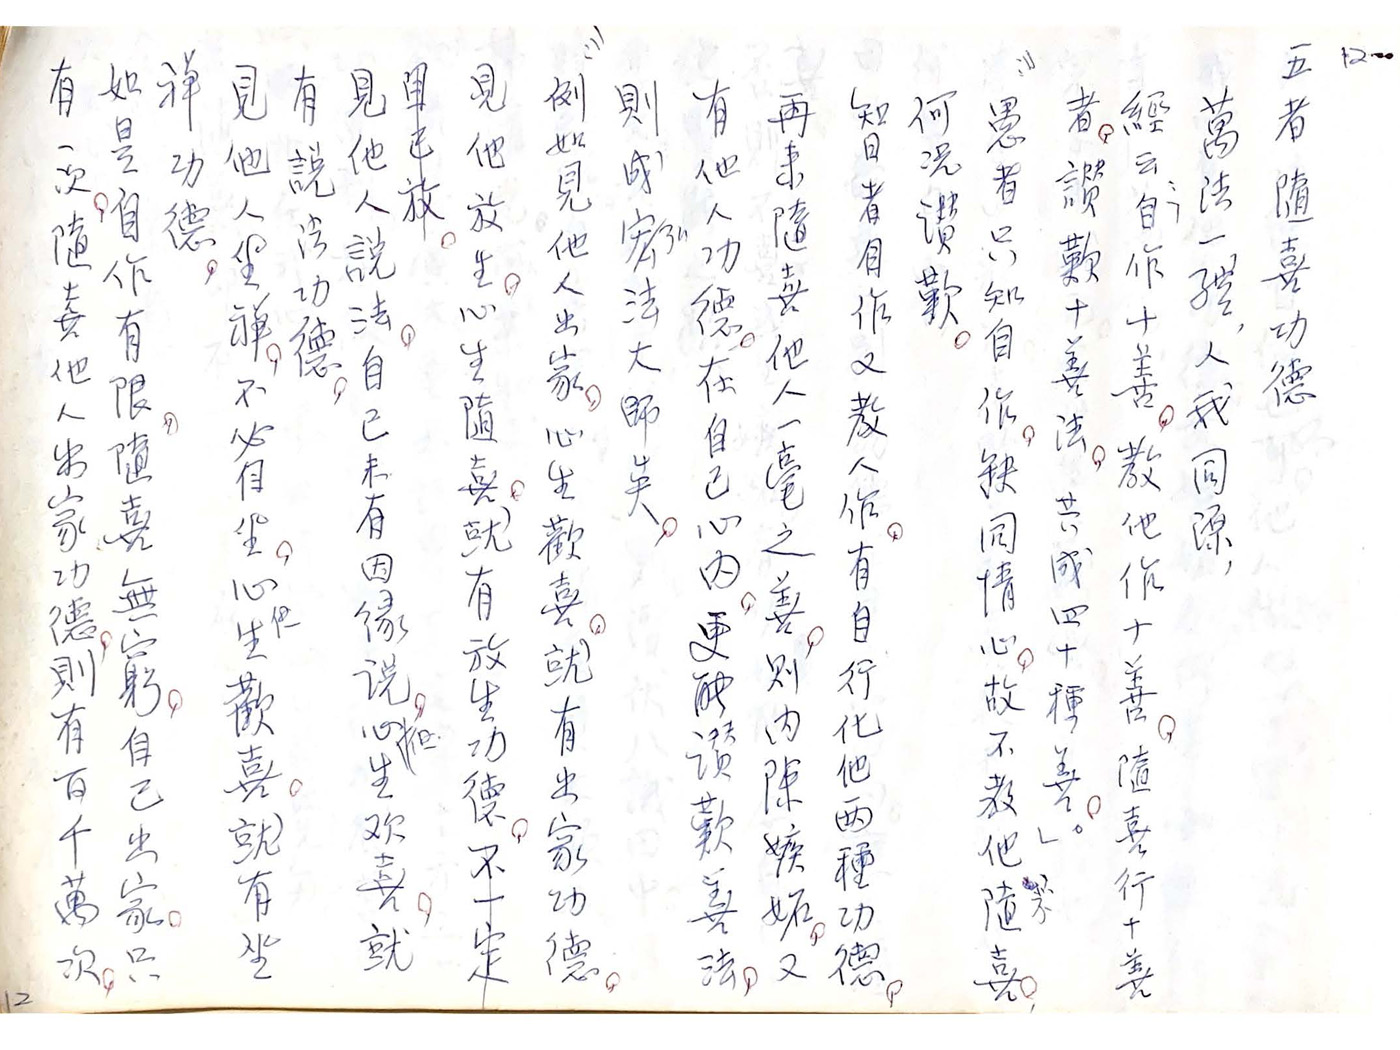 12
五者隨喜功德
萬法一體，人我同源，
經云：「自作十善，教他作十善，隨喜行十善
者，讚歎十善法，共成四十種善」。
愚者只知自作，缺同情心，故不教他隨喜，
何況讚歎。
智者自作又教人作，有自行化他兩種功德，
再來隨喜他人一毫之善，則內除嫉妬，又
有他人功德，在自己心內，更能讚歎善法，
則成宏法大師矣，
例如見他人出家，心生歡喜，就有出家功德，
見他放生，心生隨喜，就有放生功德，不一定
自己放。
見他人說法，自己未有因緣說，但心生欢喜，就
有說法功德，
見他人坐禪，不必自坐，他心生歡喜，就有坐
禪功德，
如是自作有限，隨喜無窮，自己出家只
有一次，隨喜他人出家功德，則有百千萬次，
12